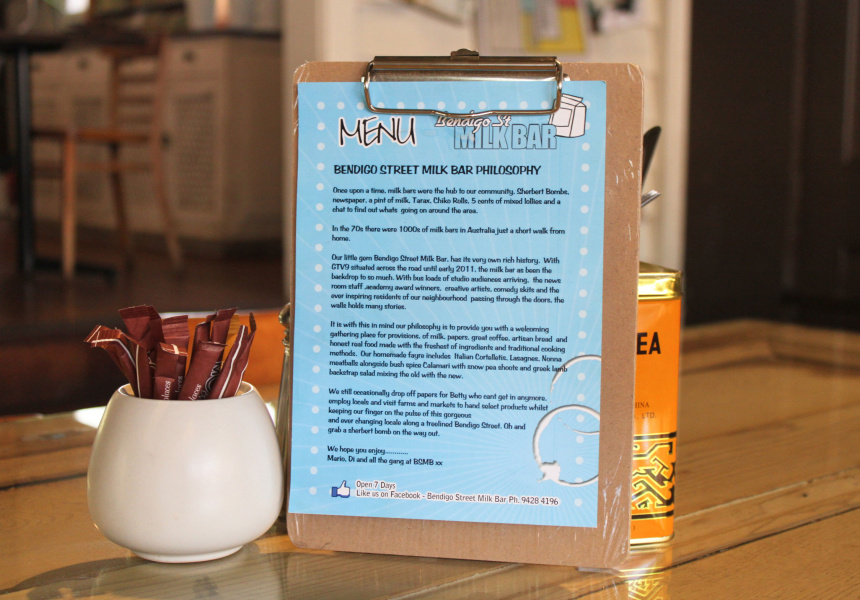 MENU
Bendigo St
MILK BAR
BENDIGO STREET MILK BAR PHILOSOPHY
Once upon a time, milk bars were the hub to our community. Sherbert Bombs,
newspaper, a pint of milk, Tarax, Chiko Rolls, 5 cents of mixed lollies and a
chat to find out whats going on around the area.
In the 70s there were 1000s of milk bars in Australia just a short walk from
home.
Our little gem Bendigo Street Milk Bar, has its very own rich history. With
GTV9 situated across the road until early 2011, the milk bar as been the
backdrop to so much. With bus loads of studio audiences arriving, the news
room staff ,academy award winners, creative artists, comedy skits and the
ever inspiring residents of our neighbourhood passing through the doors, the
walls holds many stories.
It is with this in mind our philosophy is to provide you with a welcoming
gathering place for provisions, of milk, papers, great coffee, artisan bread and
honest real food made with the freshest of ingredients and traditional cooking
methods. Our homemade fayre includes Italian Cortollette, Lasagnes, Nonna
meatballs alongside bush spice Calamari with snow pea shoots and greek lamb
backstrap salad mixing the old with the new.
We still occasionally drop off papers for Betty who cant get in anymore,
employ locals and visit farms and markets to hand select products whilst
keeping our finger on the pulse of this gorgeous
and ever changing locale along a treelined Bendigo Street. Oh and
grab a sherbert bomb on the way out.
We hope you enjoy............
Mario, Di and all the gang at BSMB xx
Open 7 Days
Like us on Facebook - Bendigo Street Milk Bar Ph. 9428 4196
EA
INA
LTD.